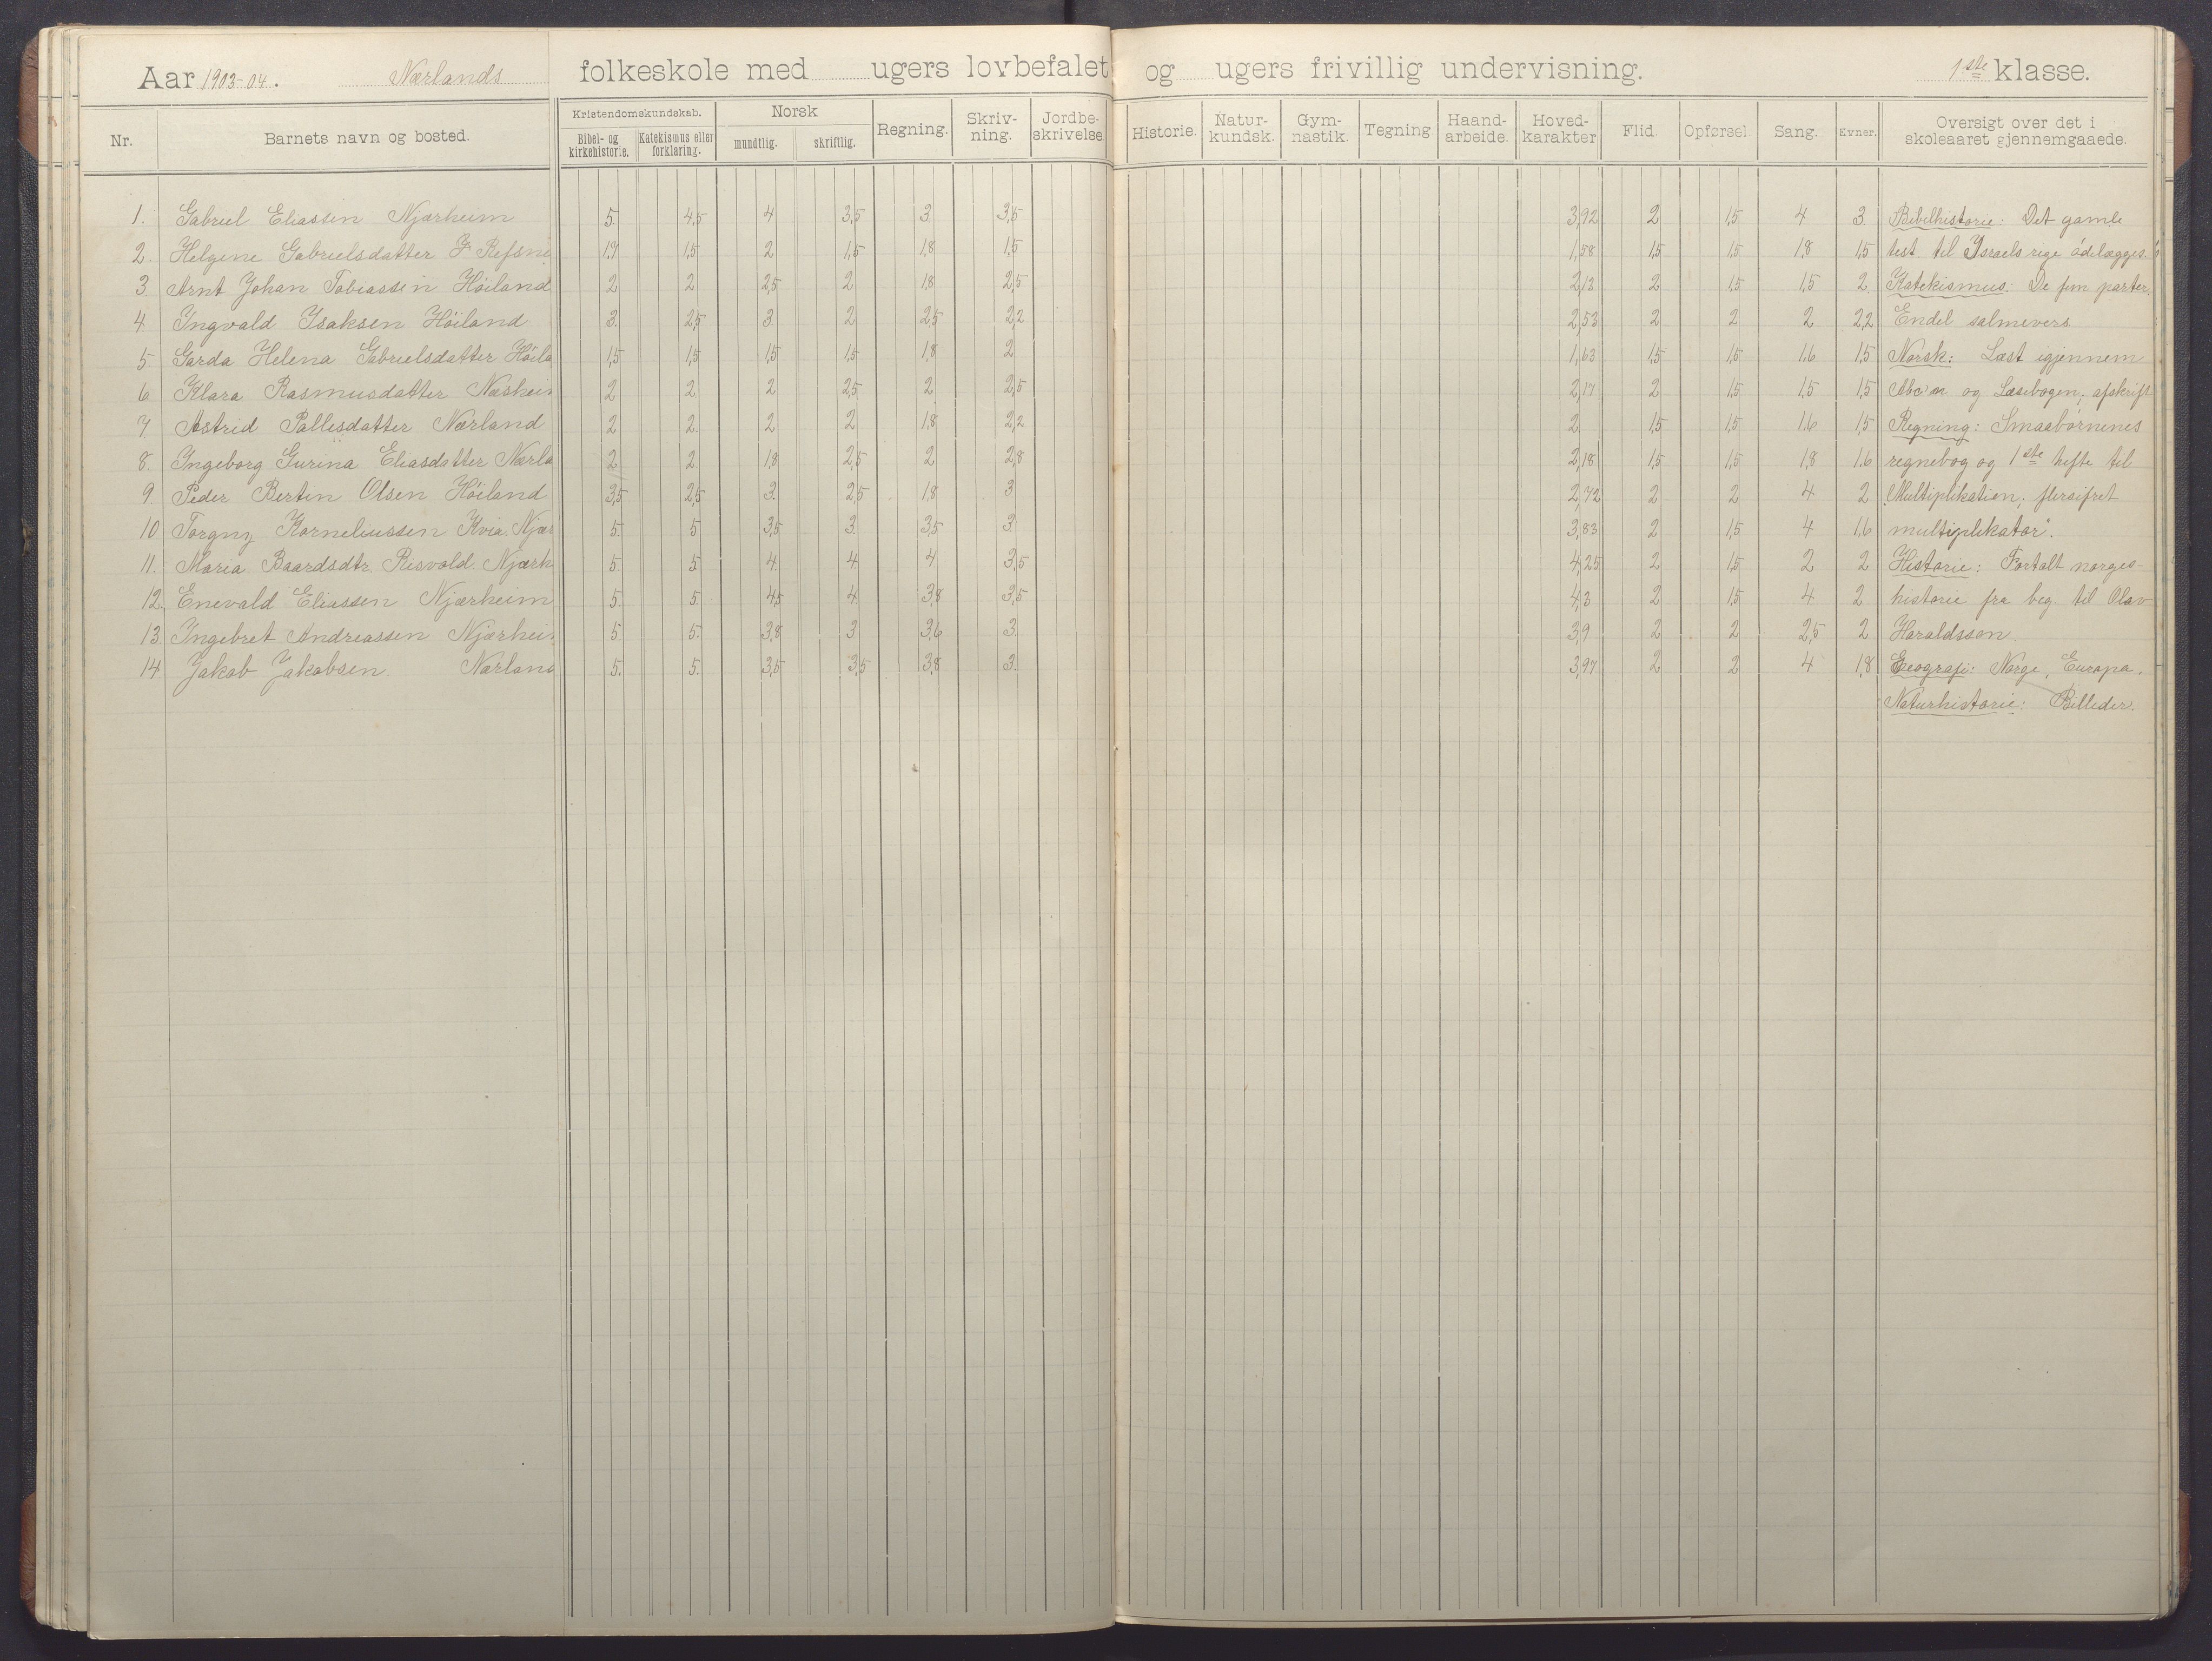 Aar 1903-04. Nærlands folkeskole med ugers lovbefalet og ugers frivillig undervisning. 1ste klasse.
Nr. Barnets navn og bosted. Kristendomskundskab. Bibel- og kirkehistorie. Katekismus eller forklaring. Norsk mundtlig. skriftlig. Regning. Skriv-ning. Jordbe-skrivelse Historie. Natur-kundsk. Gym-nastik. Tegning Haand-arbeide. Hoved-karakter Flid. Opførsel Sang. Evner. Oversigt over det i skoleaaret gjennemgaaede.
1. Gabriel Eliassen Njærheim 5. 4,5 4 3,5 3 3,5 3,92 2 1,5 4 3 Bibelhistorie: Det gamle
2. Helgene Gabrielsdatter 1,5 2 1,5 1,8 1,5 1,58 1,5 1,5 1,8 1,5 test. til Israels rige ödelægges.
3. Arnt Johan Tobiassen Höiland 2 2 2,5 2 1,8 2,5 2,13 2 1,5 1,5 2. Katekismus: De fem parter.
4. Ingvald Isaksen Höiland 3. 2,5 3. 2 2,5 2,2 2,53 2 2 2 2,2 Endel salmevers.
5. Garda Helena Gabrielsdatter Höila 1,5 1,5 1,5 1,5 1,8 2 1,63 1,5 1,5 1,6 1,5 Norsk: Læst igjennem
6. Klara Rasmusdatter 2 2. 2 2,5 2 2,5 2,17 2 1,5 1,5 1,5 og Læsebogen; afskrift
7. Astrid Pallesdatter Nærland 2 2. 2 2 1,8 2,2 2. 1,5 1,5 1,6 1,5 Regning: Smaabörnenes
8. Ingeborg Gurina Eliasdatter Nærla 2 2 1,8 2,5 2 2,8 2,18 1,5 1,5 1,8 1,6 regnebog og 1ste hefte til
9. Peder Bertin Olsen Höiland 3,5 2,5 3. 2,5 1,8 3 2,72 2 2 4 2 Multiplikation; flersifret
10 Torgny Korneliussen Kvia. Njær 5. 5 3,5 3. 3,5 3. 3,83 2 1,5 4 1,6 multiplikator".
11. Maria Baardsdtr. Risvold. Njærh 5. 5 4. 4. 4 3,5 4,25 2 1,5 2 2 Historie: Fortalt norges-
12. Enevald Eliassen Njærheim 5. 5. 4,5 4. 3,8 3,5 4,3 2 1,5 4 2 historie fra beg. til Olav
13. Ingebret Andreassen Njærhei 5 5. 3,8 3 3,6 3. 3,9 2 2 2,5 2 Haraldsson.
14 Jakob Jakobsen. Nærland 5. 5. 3,5 3,5 3,8 3. 3,97 2 2 4 1,8 Geografi: Norge, Europa.
Naturhistorie: Billeder.